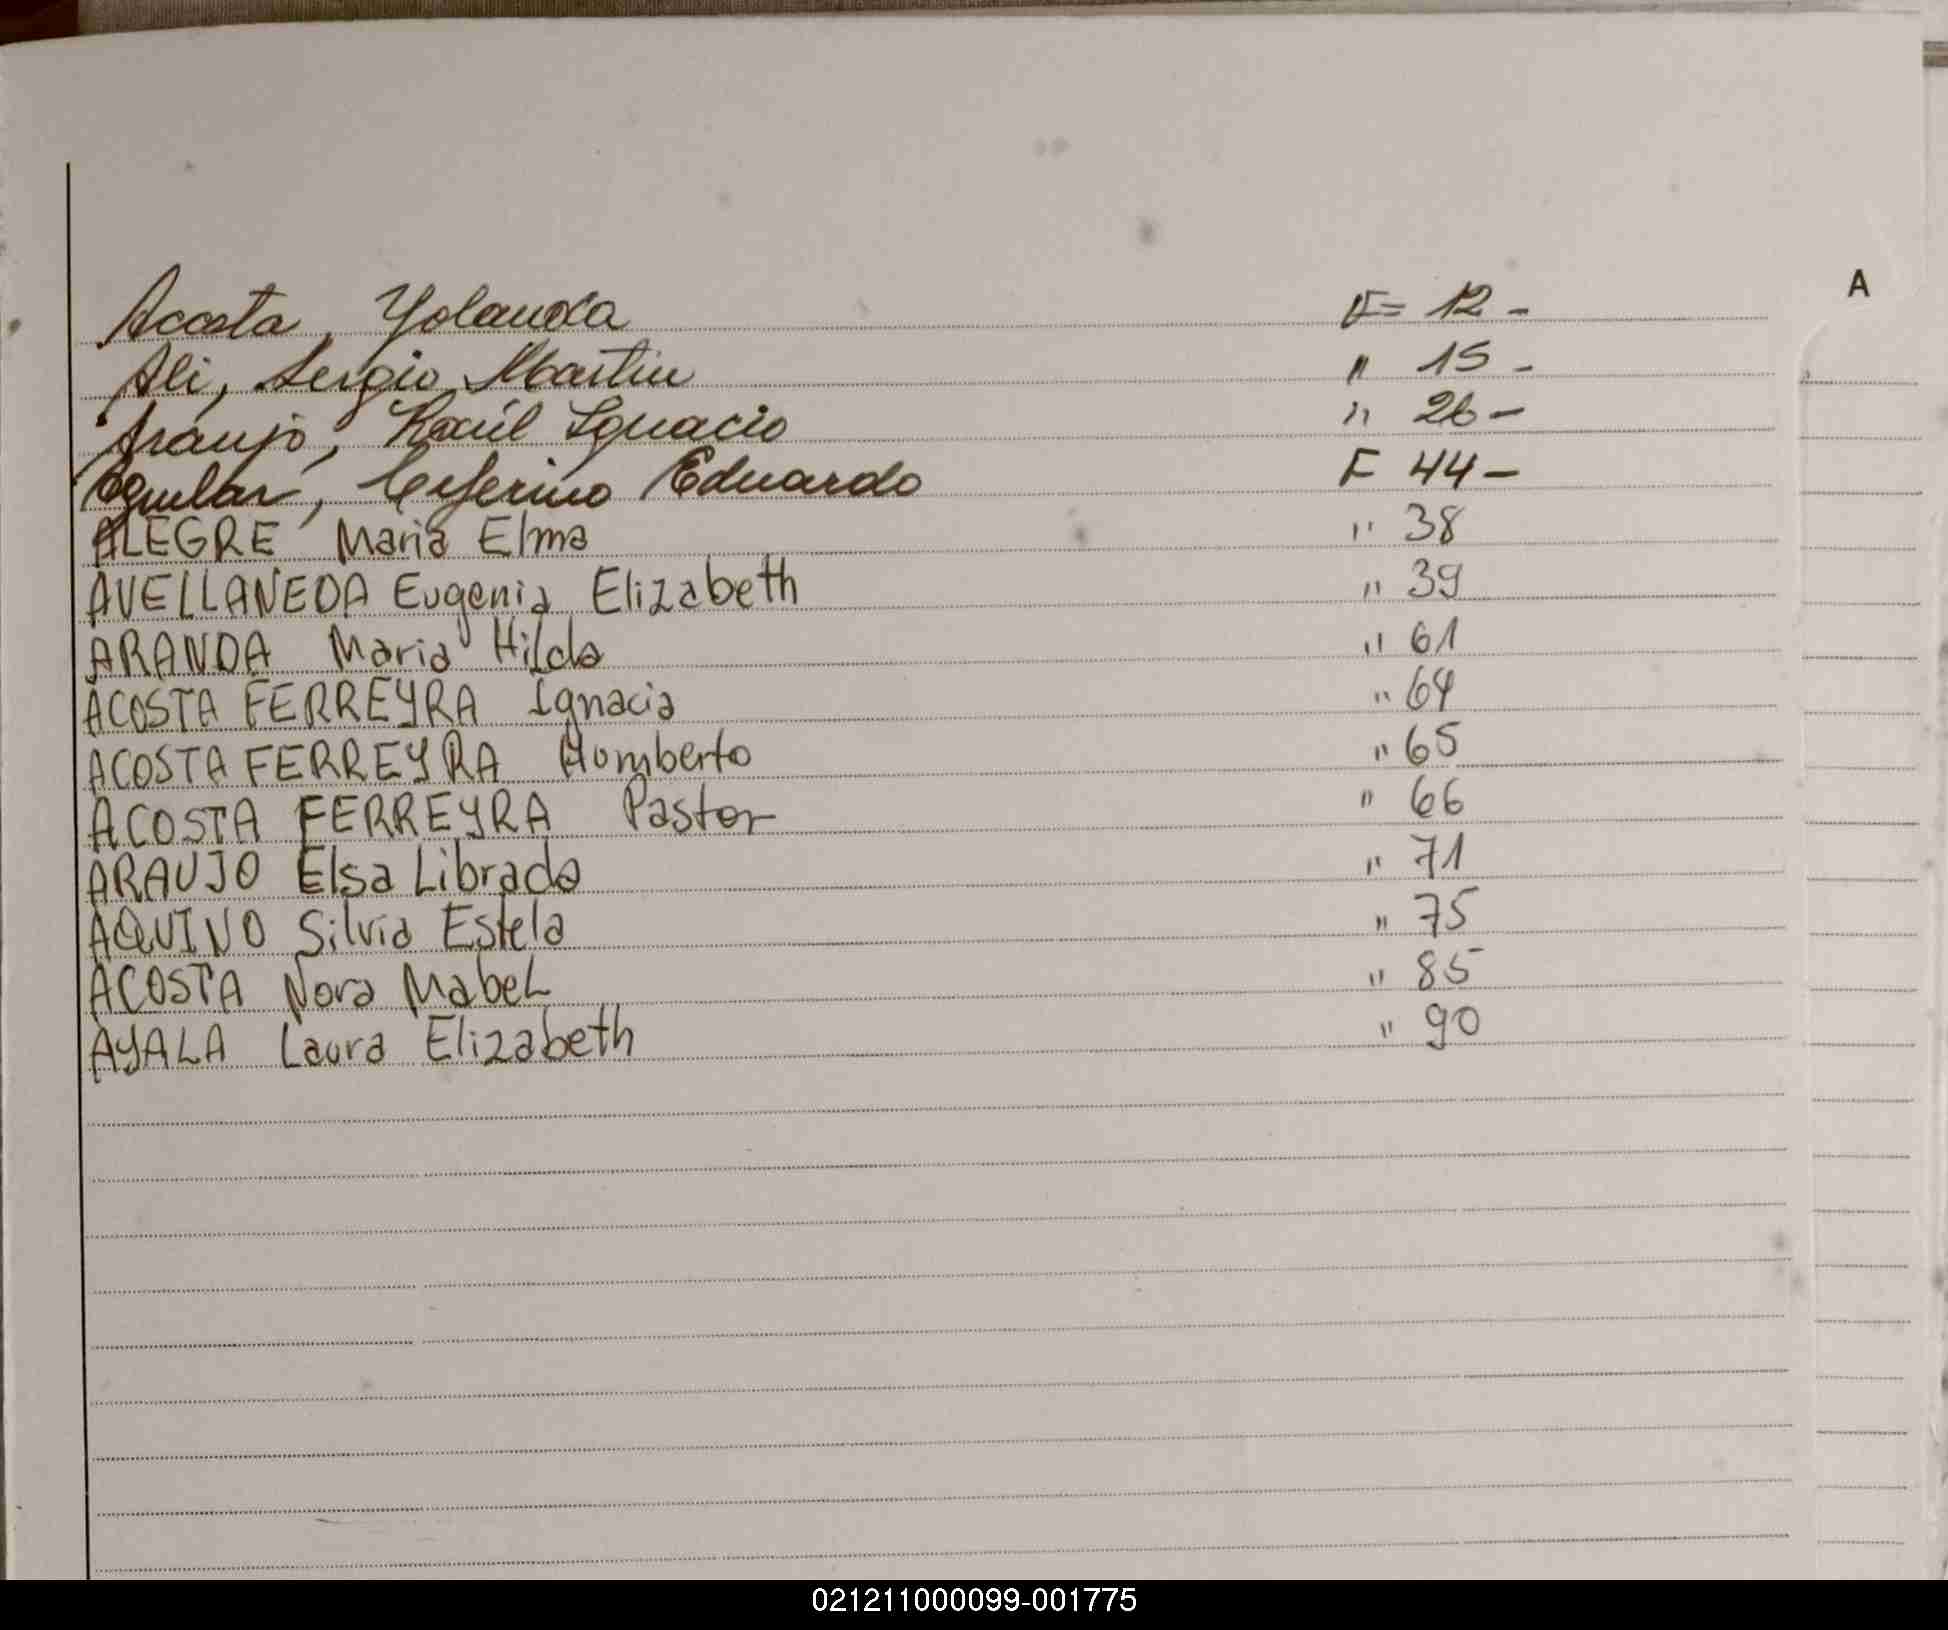 A
Acosta, Yolanda F= 12 -
Ali, Sergio Martin " 15 -
Araujo, Raúl Ignacio " 26 -
Aguilar, Ceferino Eduardo F 44 -
ALEGRE Maria Elma " 38
AVELLANEDA Eugenia Elizabeth " 39
ARANDA Maria Hilda " 61
ACOSTA FERREYRA Ignacia " 64
ACOSTA FERREYRA Humberto " 65
ACOSTA FERREYRA Pastor " 66
ARAUJO Elsa Librada " 71
AQUINO Silvia Estela " 75
ACOSTA Nora Mabel " 85
AYALA Laura Elizabeth " 90
021211000099-001775